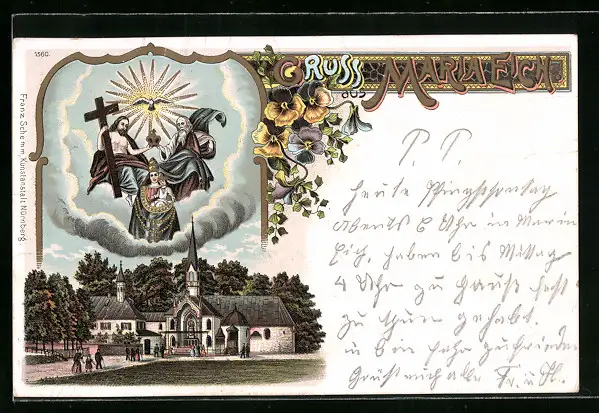 1560.
GRUSS
aus
MARIA EICH
Franz Schemm, Kunstanstalt Nürnberg.
P. P.
Heute Pfingstsonntag
Abends 6 Uhr in Maria
Eich, haben bis Mittag
4 Uhr zu Hause fest
zu thun gehabt.
u bin sehr zufrieden
Grüßt euch alle Fr. u